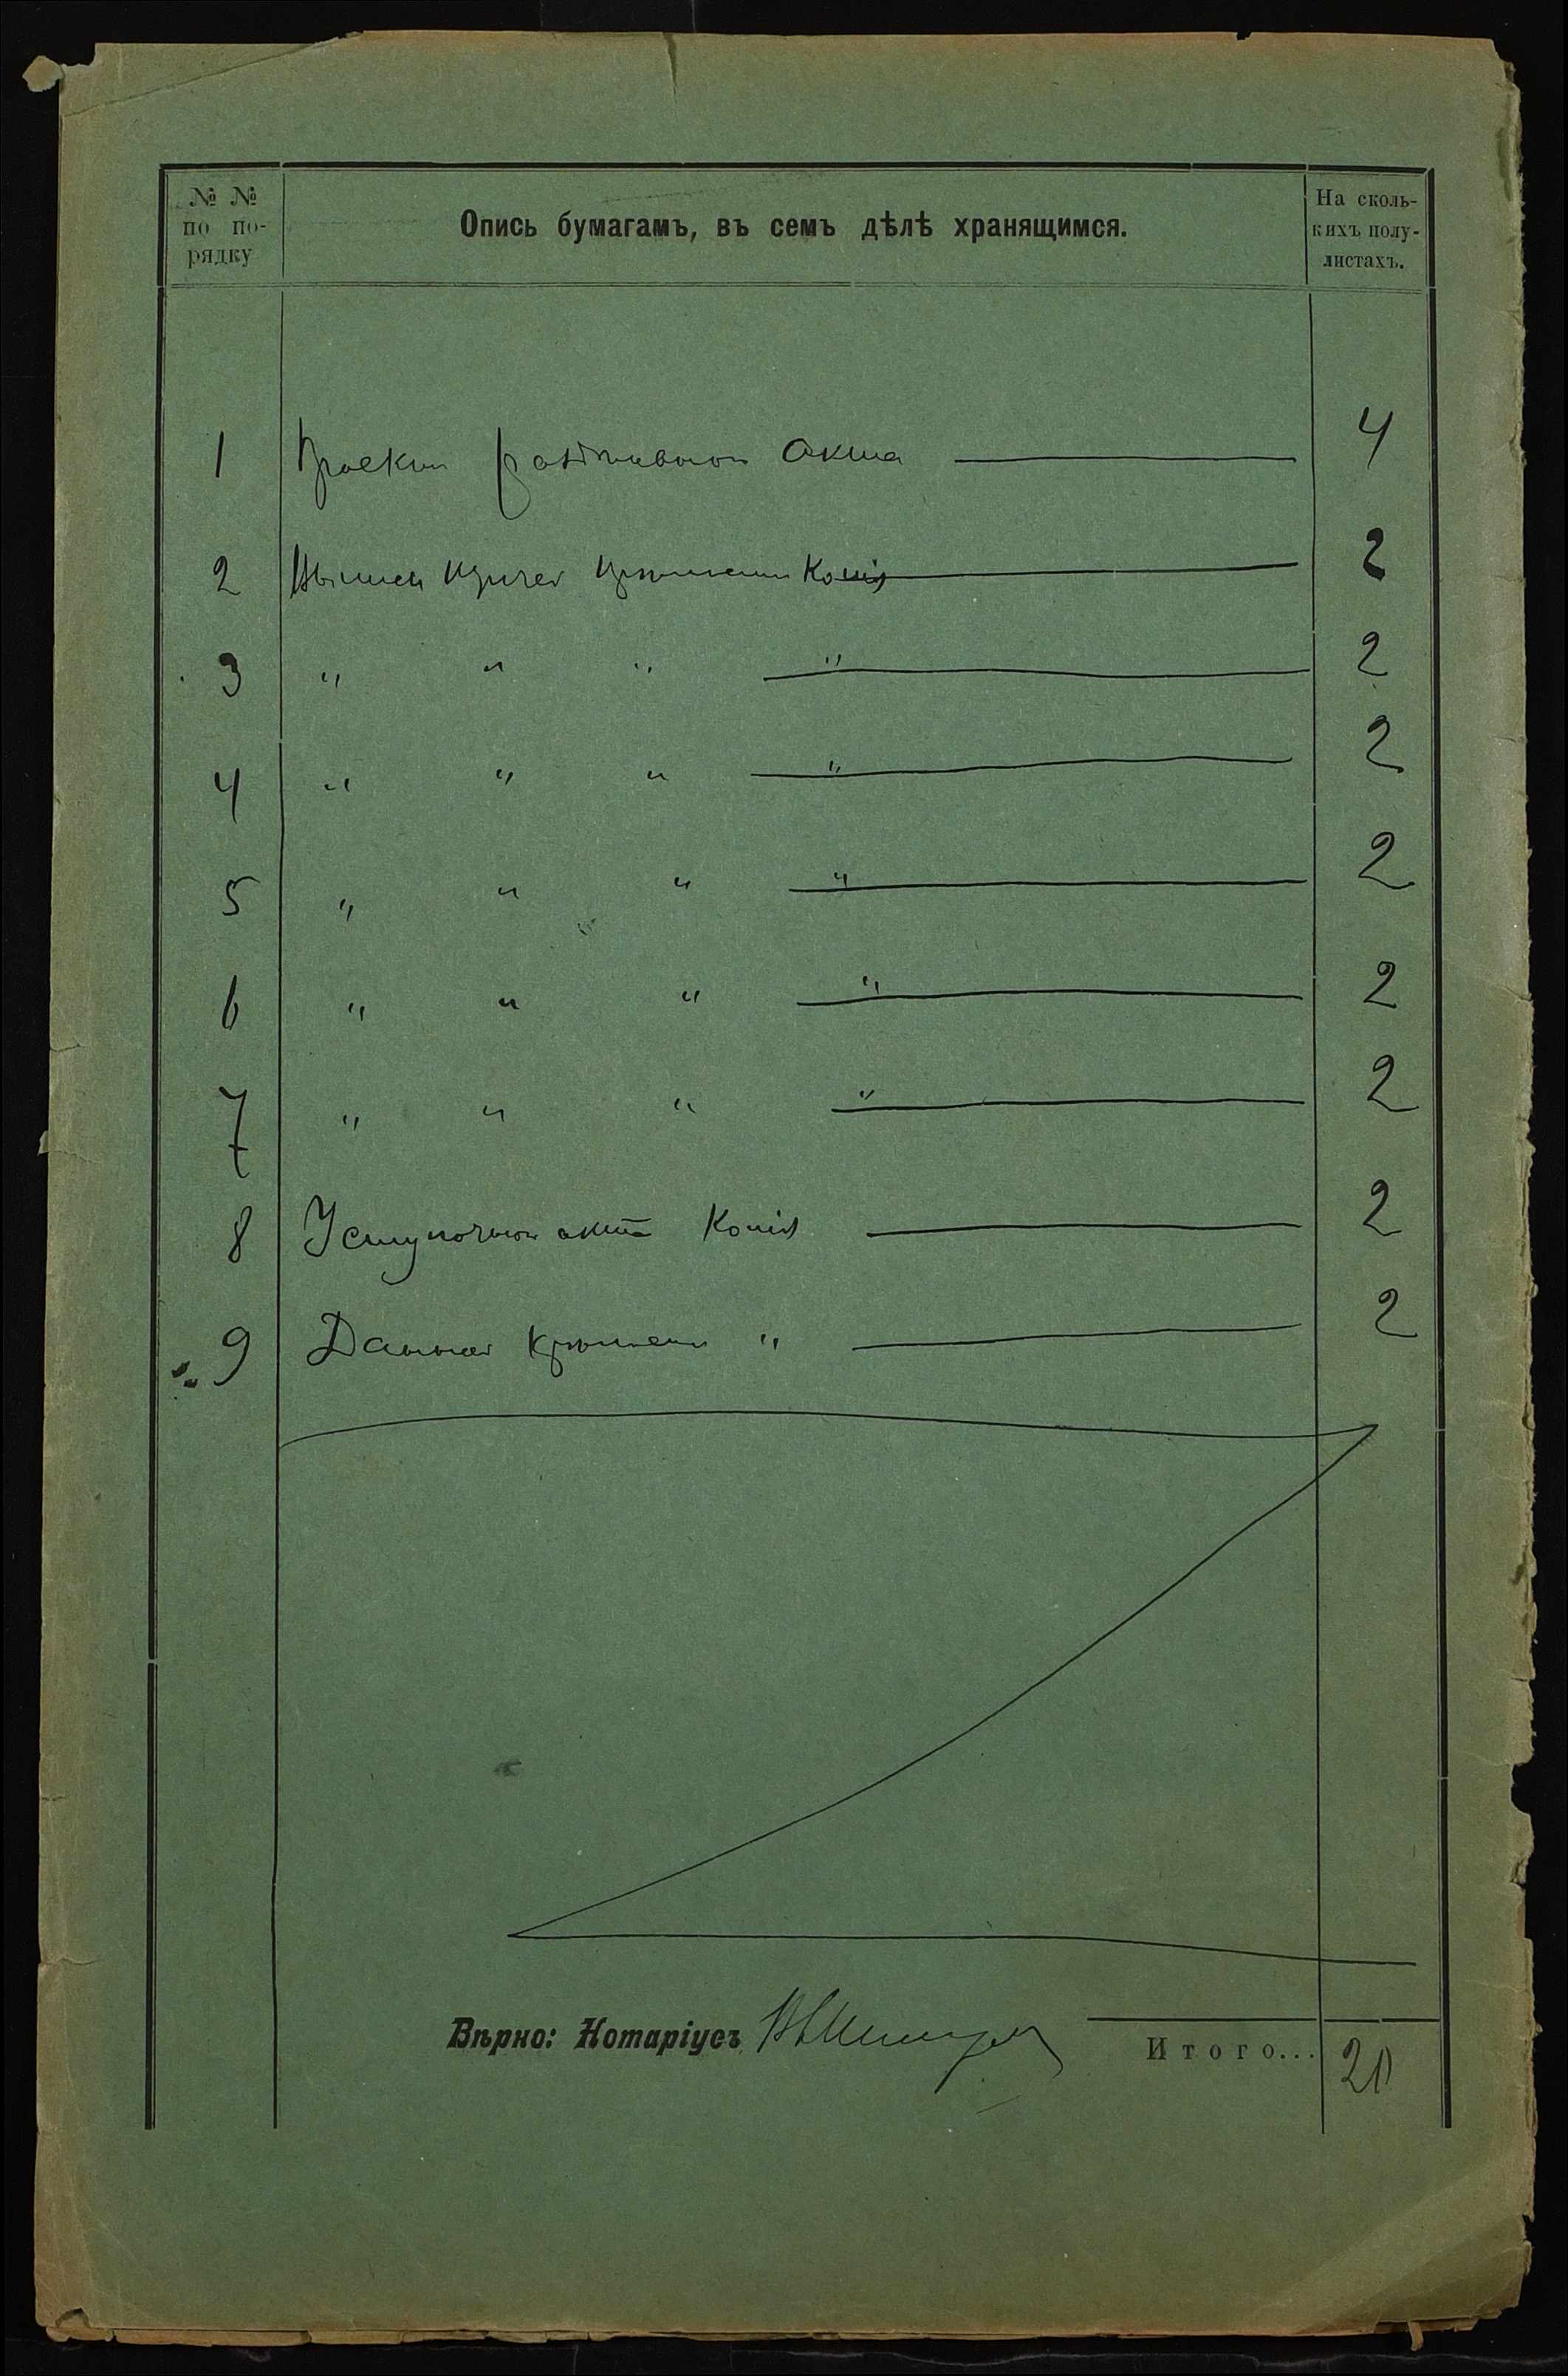 № № по порядку
Опись бумагамъ, въ семъ дѣлѣ хранящимся.
На сколь-
кихъ полу-
листахъ.
1 Проектъ раздѣльнаго акта 4
2 Выписи крѣпостн Копія 2
3 " " " " 2
4 " " " " 2
5 " " " " 2
6 " " " " 2
7 " " " " 2
8 Уступочнаго акта Копія 2
9 Данная крѣпостн " 2
Вѣрно: Нотаріусъ
Итого... 20